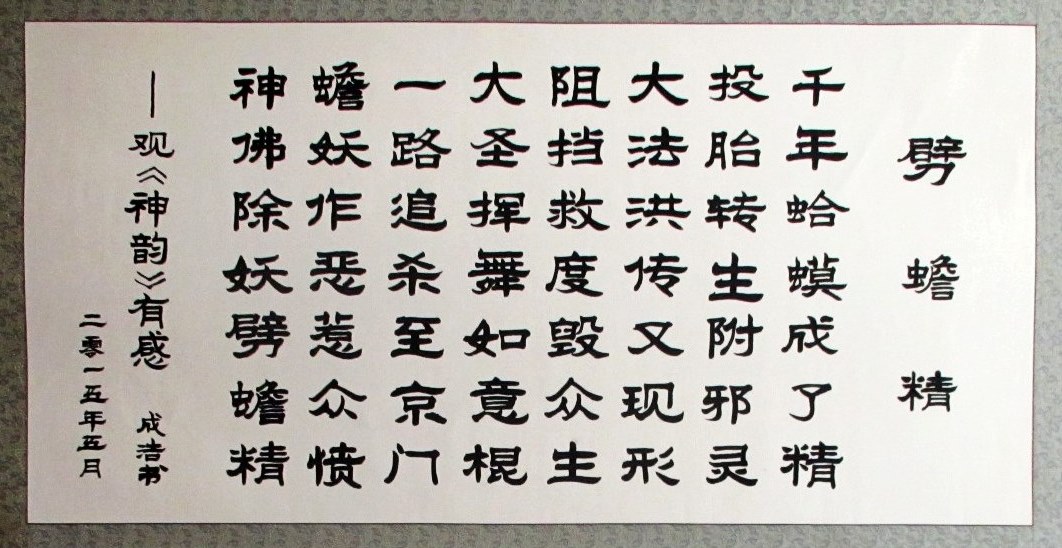 劈蟾精
千年蛤蟆成了精
投胎转生附邪灵
大法洪传又现形
阻挡救度毁众生
大圣挥舞如意棍
一路追杀至京门
蟾妖作恶惹众愤
神佛除妖劈蟾精
——观《神韵》有感 成浩书
二零一五年五月